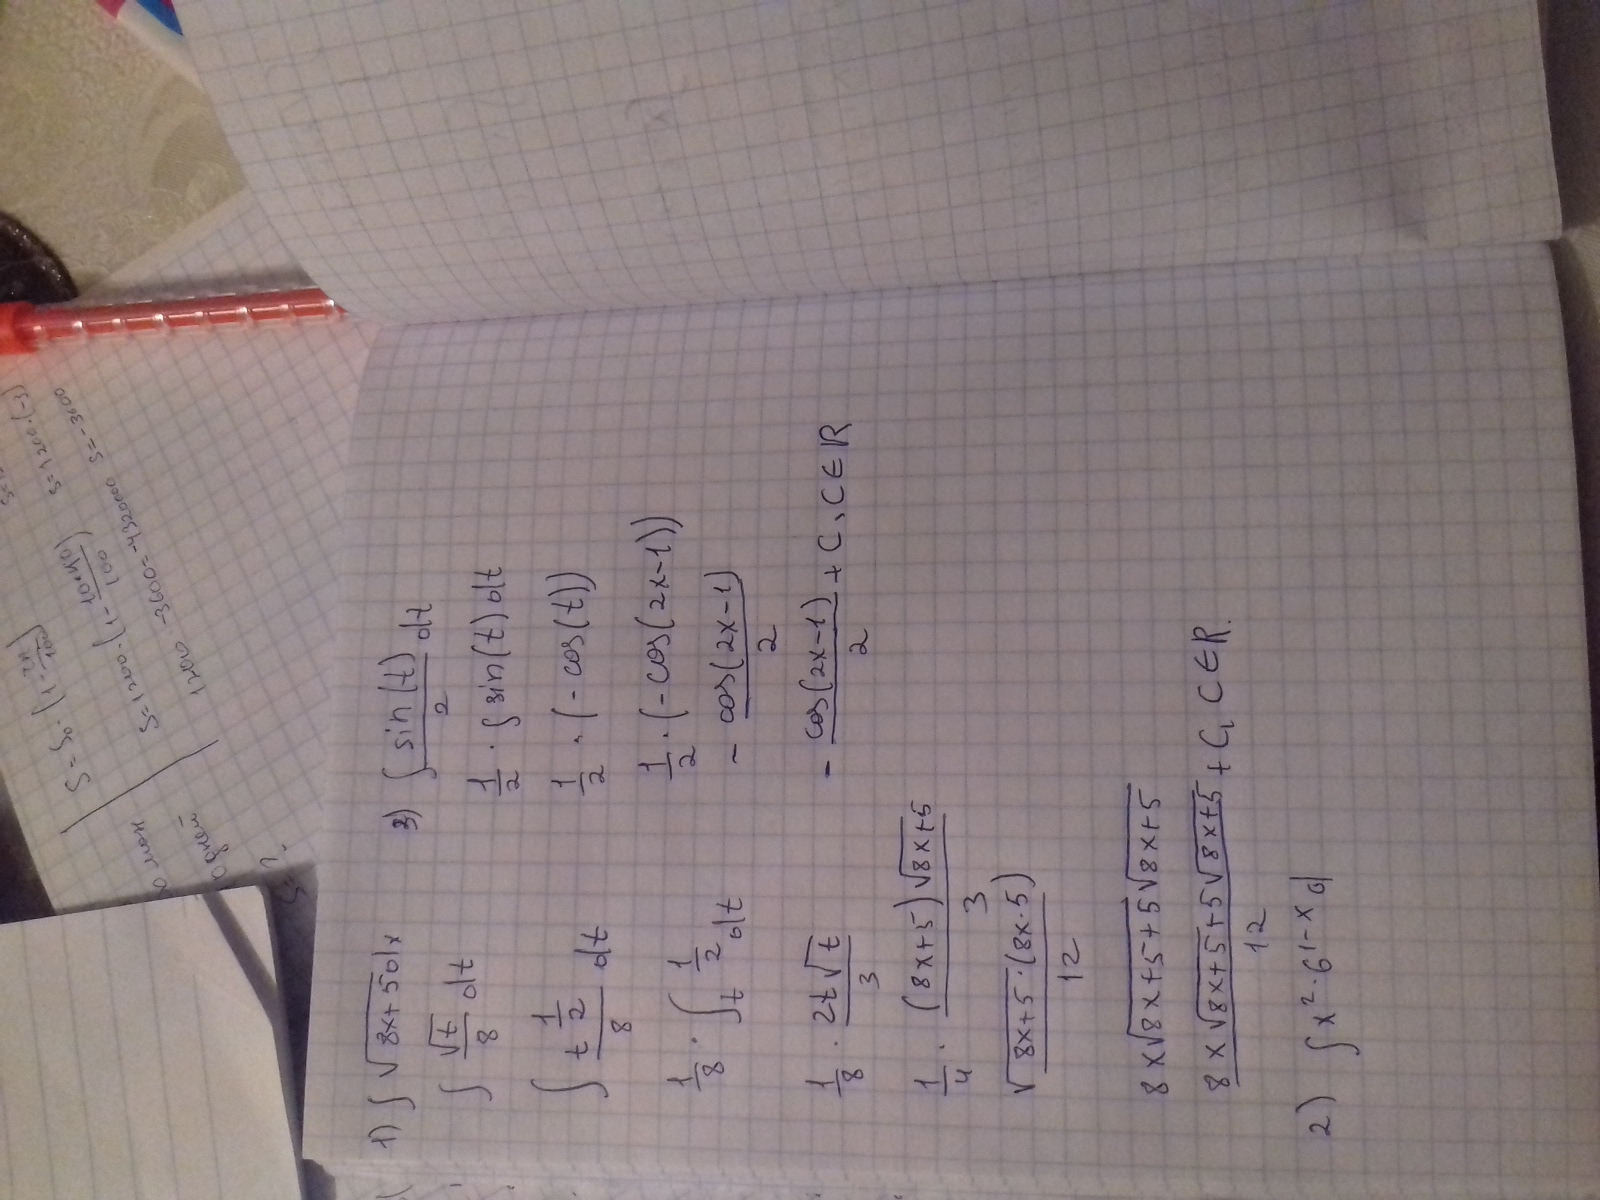 1) ∫ √(8x+5) dx
∫ √t/8 dt
∫ t^(1/2)/8 dt
1/8 · ∫ t^(1/2) dt
1/8 · 2t√t/3
1/4 · (8x+5)√(8x+5)/3
√(8x+5)·(8x·5)/12
8x√(8x+5)+5√(8x+5)
8x√(8x+5)+5√(8x+5)/12 + C, C∈R.
2) ∫ x²·6^(1-x) d
3) ∫ sin(t)/2 dt
1/2 · ∫ sin(t) dt
1/2 · (-cos(t))
1/2 · (-cos(2x-1))
- cos(2x-1)/2
- cos(2x-1)/2 + C, C∈R
S=1200·(1-
S=1200·(-3)
S=-3600
1200·-3600=-4320000